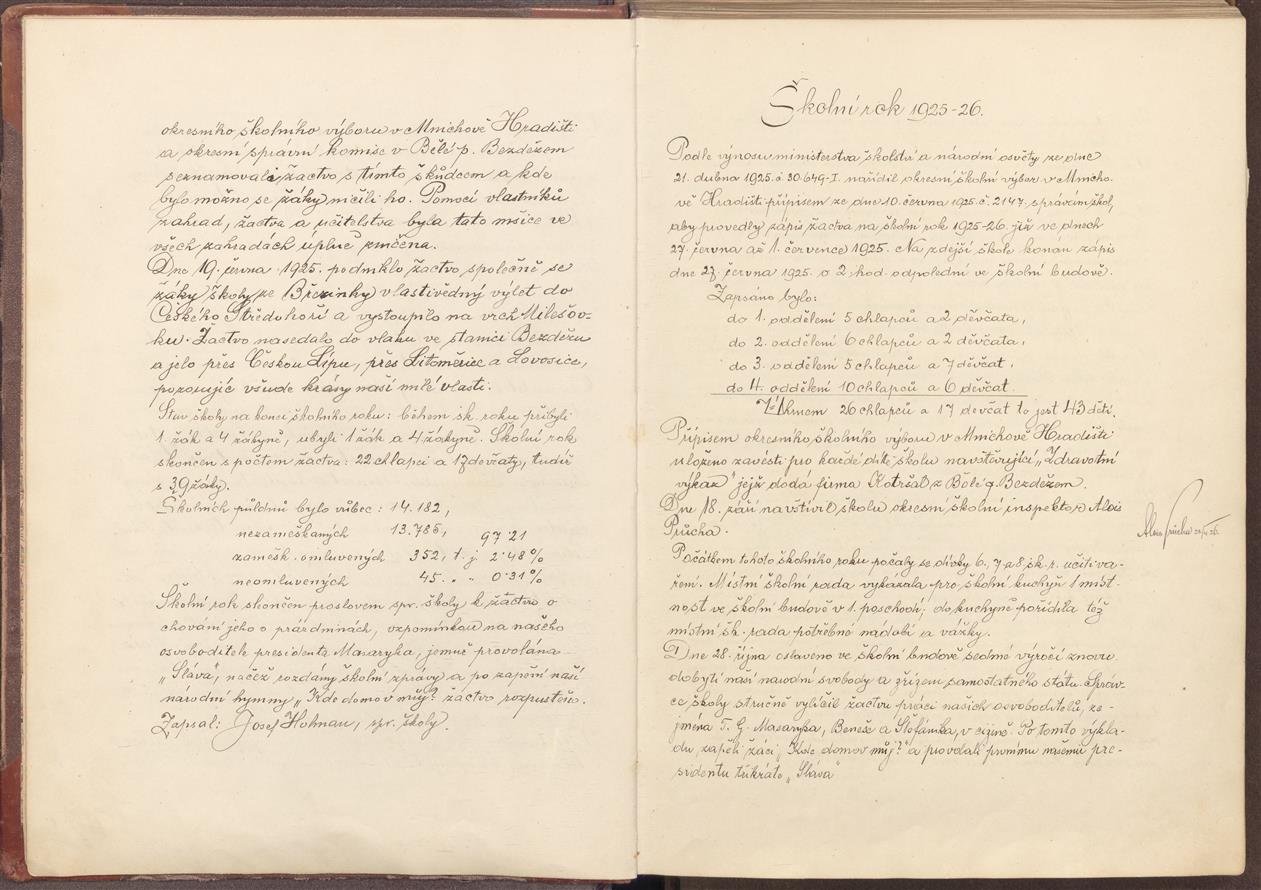 okresního školního výboru v Mnichově Hradišti
a okresní správní komise v Bělé p. Bezdězem
seznamovali žactvo s tímto škůdcem a kde
bylo možno se žáky ničili ho. Pomocí vlastníků
zahrad, žactva a učitelstva byla tato mšice ve
všech zahradách uplně zničena.
Dne 19. června 1925. podniklo žactvo společně se
žáky školy ze Březinky vlastivědný výlet do
Českého Středohoří a vystoupilo na vrch Milešov-
ku. Žactvo nasedalo do vlaku ve stanici Bezdězu
a jelo přes Českou Lípu, přes Litoměřice a Lovosice,
pozorujíc všude krásy naší milé vlasti.
Stav školy na konci školního roku: během šk. roku přibyli
1 žák a 4 žákyně, ubyli 1 žák a 4 žákyně. Školní rok
skončen s počtem žactva: 22 chlapci a 17 děvčaty, tudíž
s 39 žáky.
Školních půldnů bylo vůbec: 14.182,
nezameškaných 13.785, 97·21
zamešk. omluvených 352, t. j. 2·48%
neomluvených 45. „ „ 0·31%
Školní rok skončen proslovem spr. školy k žactvu o
chování jeho o prázdninách, vzpomínkou na našeho
osvoboditele presidenta Masaryka, jemuž provolána
„Sláva", načež rozdány školní zprávy a po zapění naší
národní hymny „Kde domov můj? žactvo rozpuštěno.
Zapsal: Josef Hohnau, spr. školy.
Školní rok 1925-26.
Podle výnosu ministerstva školství a národní osvěty ze dne
21. dubna 1925. č 30.649-I. nařídil okresní školní výbor v Mnicho-
vě Hradišti přípisem ze dne 10. června 1925. č. 2147. správám škol,
aby provedly zápis žactva na školní rok 1925-26. již ve dnech
27. června až 1. července 1925. Na zdejší škole konán zápis
dne 27. června 1925. o 2 hod. odpolední ve školní budově.
Zapsáno bylo:
do 1. oddělení 5 chlapců a 2 děvčata,
do 2. oddělení 6 chlapců a 2 děvčata,
do 3. oddělení 5 chlapců a 7 děvčat,
do 4. oddělení 10 chlapců a 6 děvčat
Úhrnem 26 chlapců a 17 děvčat to jest 43 dětí.
Přípisem okresního školního výboru v Mnichově Hradišti
uloženo zavésti pro každé dítě školu navštěvující „Zdravotní
výkaz" jejž dodá firma v Bělé p. Bezdězem.
Dne 18. září navštívil školu okresní školní inspektor p. Alois
Průcha.
Alois Průcha
Počátkem tohoto školního roku počaly se dívky 6., 7. a 8. šk. r. učiti va-
ření. Místní školní rada vykázala pro školní kuchyň 1 míst-
nost ve školní budově v 1. poschodí; do kuchyně pořídila též
místní šk. rada potřebné nádobí a vážky.
Dne 28. října oslaveno ve školní budově sedmé výročí znovu
dobytí naší národní svobody a zřízení samostatného státu. Správ-
ce školy stručně vylíčil žactvu práci našich osvoboditelů, ze-
jména T. G. Masaryka, Beneše a Štefánika, v cizině. Po tomto výkla-
du zapěli žáci „Kde domov můj?" a provolali prvnímu našemu pre-
sidentu třikráte „Sláva"